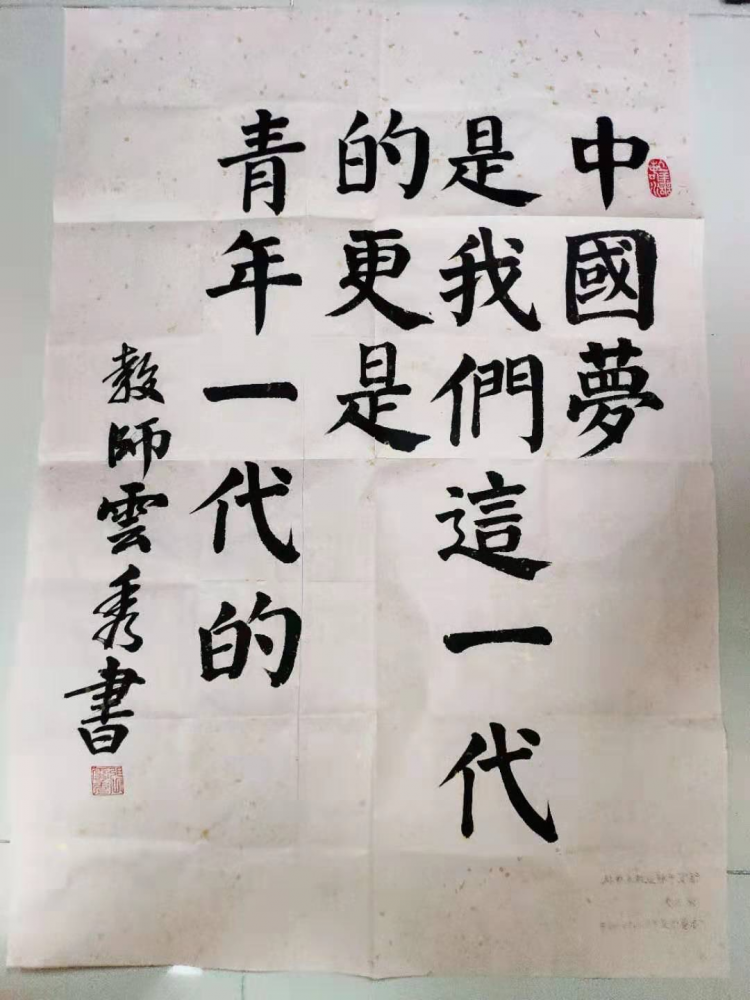 中國夢
是我們這一代
的更是
青年一代的
教師雲秀書